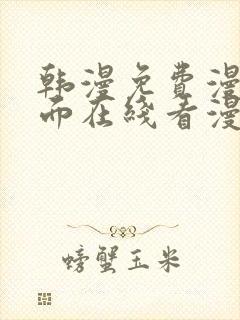 韩漫免费漫
而在线看漫
螃蟹玉米